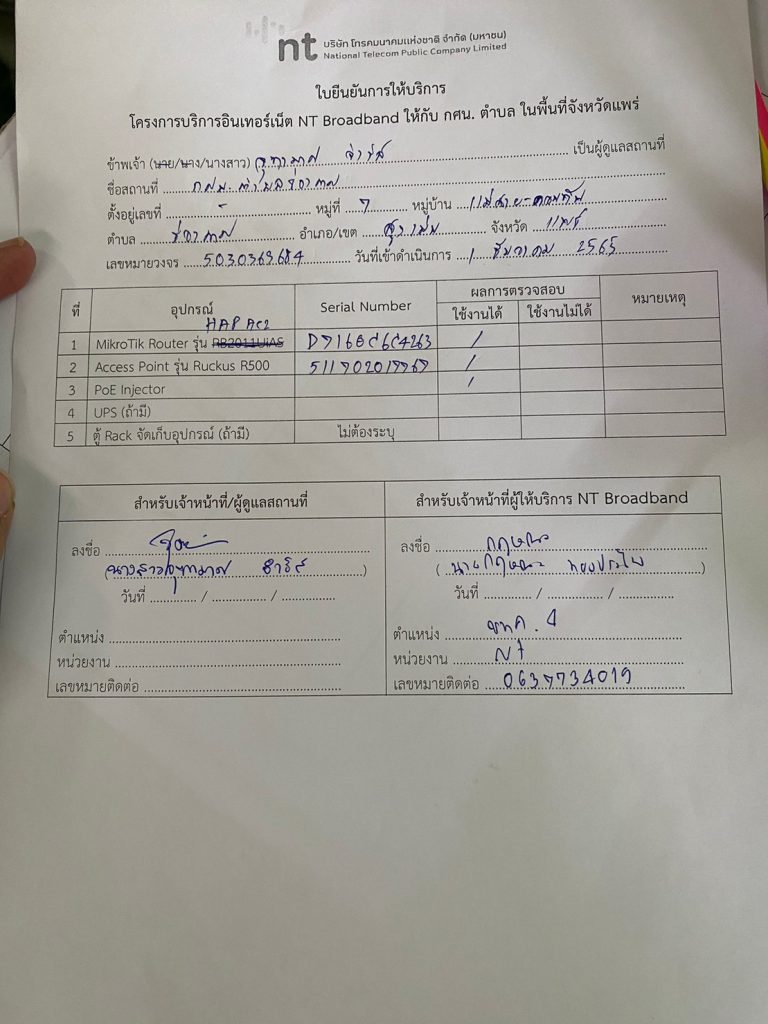 nt บริษัท โทรคมนาคมแห่งชาติ จำกัด (มหาชน)
National Telecom Public Company Limited
ใบยืนยันการให้บริการ
โครงการบริการอินเทอร์เน็ต NT Broadband ให้กับ กศน. ตำบล ในพื้นที่จังหวัดแพร่
ข้าพเจ้า (นาย/นาง/นางสาว) จุฑามาศ เป็นผู้ดูแลสถานที่
ชื่อสถานที่ กศน. ตำบล
ตั้งอยู่เลขที่ - หมู่ที่ 7 หมู่บ้าน
ตำบล อำเภอ/เขต สูงเม่น จังหวัด แพร่
เลขหมายวงจร 5030369684 วันที่เข้าดำเนินการ 1 ธันวาคม 2565
ที่ อุปกรณ์ Serial Number ผลการตรวจสอบ หมายเหตุ
ใช้งานได้ ใช้งานไม่ได้
HAP AC2
1 MikroTik Router รุ่น RB2011UiAS /
2 Access Point รุ่น Ruckus R500 511902019969 /
3 PoE Injector /
4 UPS (ถ้ามี)
5 ตู้ Rack จัดเก็บอุปกรณ์ (ถ้ามี) ไม่ต้องระบุ
สำหรับเจ้าหน้าที่/ผู้ดูแลสถานที่
ลงชื่อ
(นางสาวจุฑามาศ )
วันที่ / /
ตำแหน่ง
หน่วยงาน
เลขหมายติดต่อ
สำหรับเจ้าหน้าที่ผู้ให้บริการ NT Broadband
ลงชื่อ กฤษณะ
(นายกฤษณะ )
วันที่ / /
ตำแหน่ง
หน่วยงาน NT
เลขหมายติดต่อ 0637734019